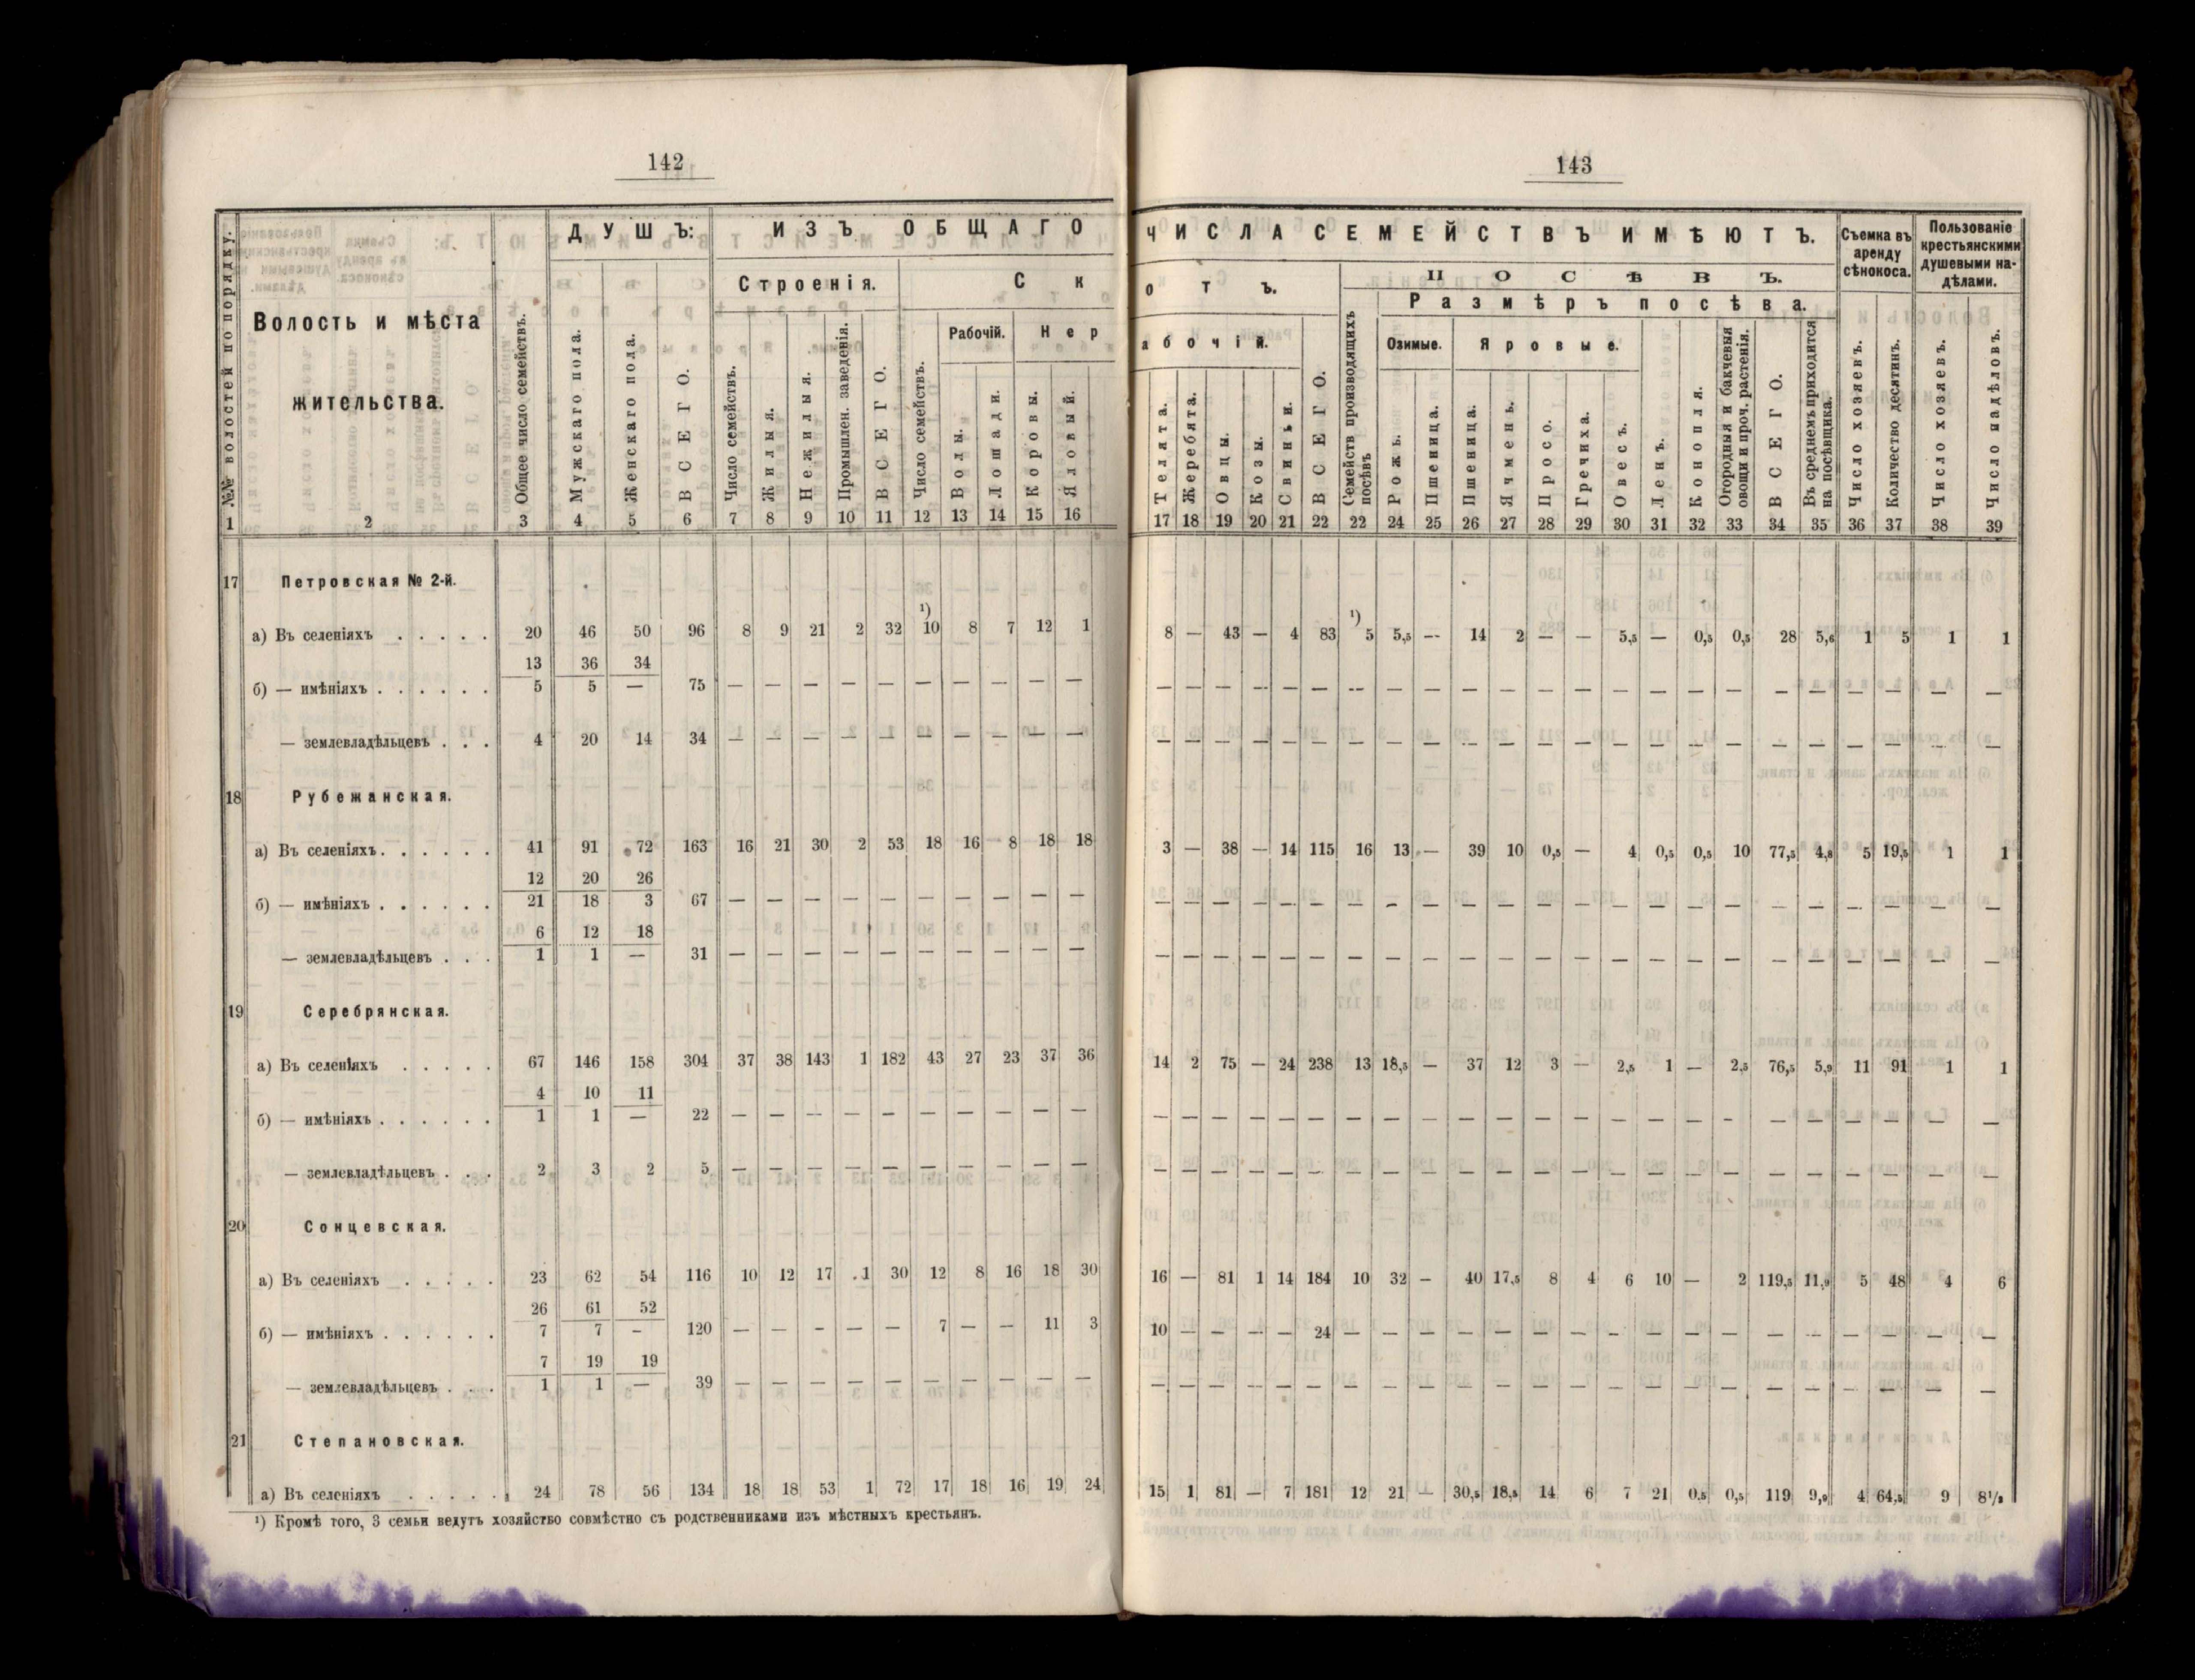 142
№№ волостей по порядку.
Волость и мѣста жительства.
Общее число семействъ.
ДУШЪ:
Мужскаго пола.
Женскаго пола.
ВСЕГО.
ИЗЪ ОБЩАГО
Строенія.
Число семействъ.
Жилыя.
Нежилыя.
Промышлен. заведенія.
ВСЕГО.
Ск
Число семействъ.
Рабочій.
Волы.
Лошади.
Нер
Коровы.
Яловый.
1 2 3 4 5 6 7 8 9 10 11 12 13 14 15 16
17 Петровская № 2-й.
а) Въ селеніяхъ . . . . . 20 46 50 96 8 9 21 2 32 ¹) 10 8 7 12 1
13 36 34
б) — имѣніяхъ . . . . . . 5 5 — 75 — — — — — — — — — —
— землевладѣльцевъ . . . 4 20 14 34 — — — — — — — — — —
18 Рубежанская.
а) Въ селеніяхъ . . . . . . 41 91 72 163 16 21 30 2 53 18 16 8 18 18
12 20 26
б) — имѣніяхъ . . . . . . 21 18 3 67 — — — — — — — — — —
6 12 18
— землевладѣльцевъ . . . 1 1 — 31 — — — — — — — — — —
19 Серебрянская.
а) Въ селеніяхъ . . . . . 67 146 158 304 37 38 143 1 182 43 27 23 37 36
4 10 11
б) — имѣніяхъ . . . . . . 1 1 — 22 — — — — — — — — — —
— землевладѣльцевъ . . . 2 3 2 5 — — — — — — — — — —
20 Сонцевская.
а) Въ селеніяхъ . . . . . 23 62 54 116 10 12 17 1 30 12 8 16 18 30
26 61 52
б) — имѣніяхъ . . . . . . 7 7 — 120 — — — — — 7 — — 11 3
7 19 19
— землевладѣльцевъ . . . 1 1 — 39 — — — — — — — — — —
21 Степановская.
а) Въ селеніяхъ . . . . . 24 78 56 134 18 18 53 1 72 17 18 16 19 24
¹) Кромѣ того, 3 семьи ведутъ хозяйство совмѣстно съ родственниками изъ мѣстныхъ крестьянъ.
143
ЧИСЛА СЕМЕЙСТВЪ ИМѢЮТЪ.
отъ.
абочій.
Телята.
Жеребята.
Овцы.
Козы.
Свиньи.
ВСЕГО.
ПОСѢВЪ.
Семействъ производящихъ посѣвъ
Размѣръ посѣва.
Озимые.
Рожь.
Пшеница.
Яровые.
Пшеница.
Ячмень.
Просо.
Гречиха.
Овесъ.
Ленъ.
Конопля.
Огородныя и бакчевыя овощи и проч. растенія.
ВСЕГО.
Въ среднемъ приходится на посѣвщика.
Съемка въ аренду сѣнокоса.
Число хозяевъ.
Количество десятинъ.
Пользованіе крестьянскими душевыми надѣлами.
Число хозяевъ.
Число надѣловъ.
17 18 19 20 21 22 22 24 25 26 27 28 29 30 31 32 33 34 35 36 37 38 39
8 — 43 — 4 83 ¹) 5 5,5 — 14 2 — — 5,5 — 0,5 0,5 28 5,6 1 5 1 1
— — — — — — — — — — — — — — — — — — — — — — —
— — — — — — — — — — — — — — — — — — — — — — —
3 — 38 — 14 115 16 13 — 39 10 0,5 — 4 0,5 0,5 10 77,5 4,8 5 19,5 1 1
— — — — — — — — — — — — — — — — — — — — — — —
— — — — — — — — — — — — — — — — — — — — — — —
14 2 75 — 24 238 13 18,5 — 37 12 3 — 2,5 1 — 2,5 76,5 5,9 11 91 1 1
— — — — — — — — — — — — — — — — — — — — — — —
— — — — — — — — — — — — — — — — — — — — — — —
16 — 81 1 14 184 10 32 — 40 17,5 8 4 6 10 — 2 119,5 11,9 5 48 4 6
10 — — — — 24 — — — — — — — — — — — — — — — — —
— — — — — — — — — — — — — — — — — — — — — — —
15 1 81 — 7 181 12 21 — 30,5 18,5 14 6 7 21 0,5 0,5 119 9,9 4 64,5 9 8½